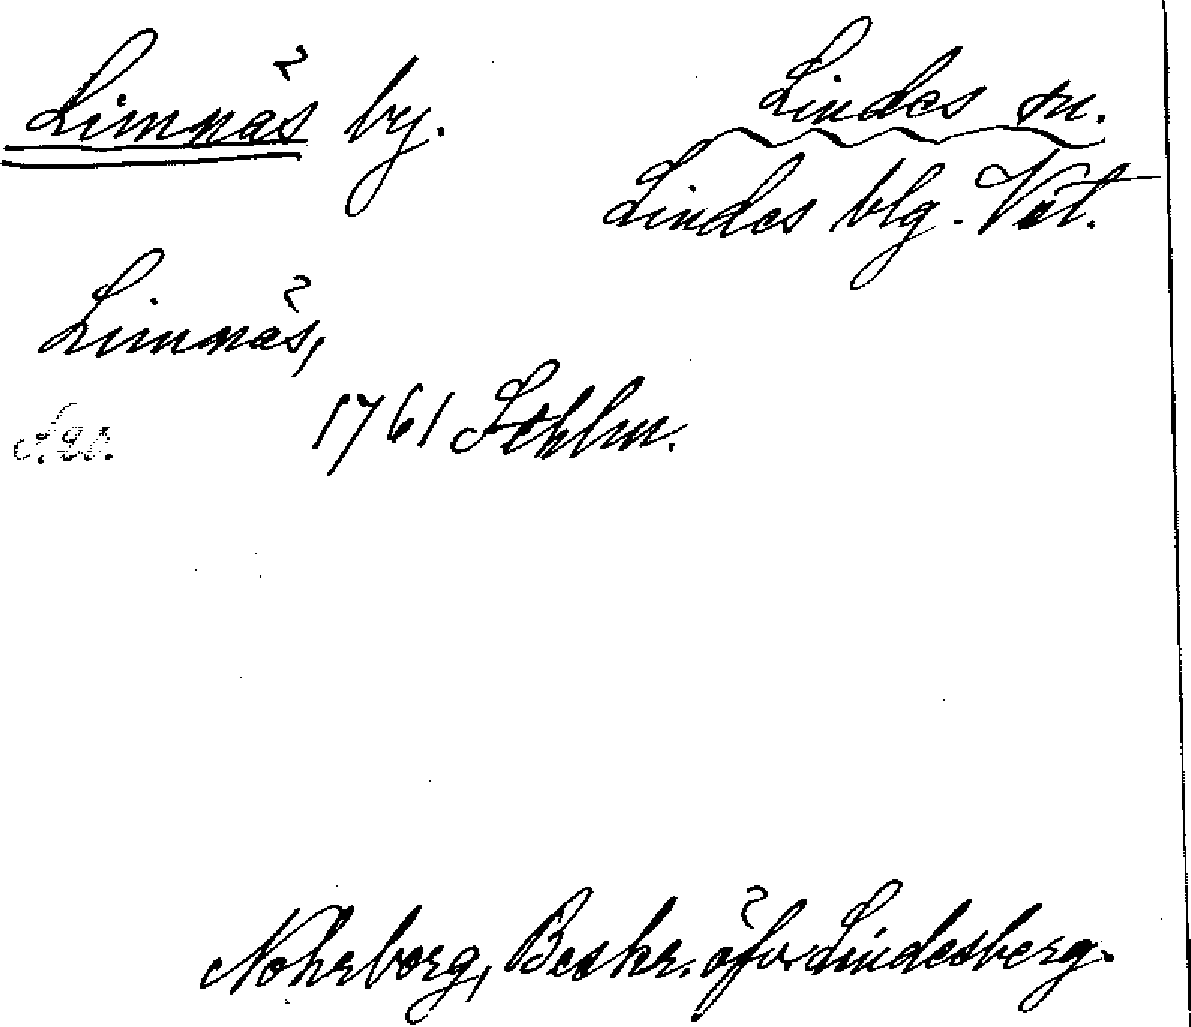 Limnäs by. Lindes sn.
Lindes blg. Vst.
Limnäs,
1761 Sthlm.
Nohrborg, Beskr. öfv. Lindesberg.